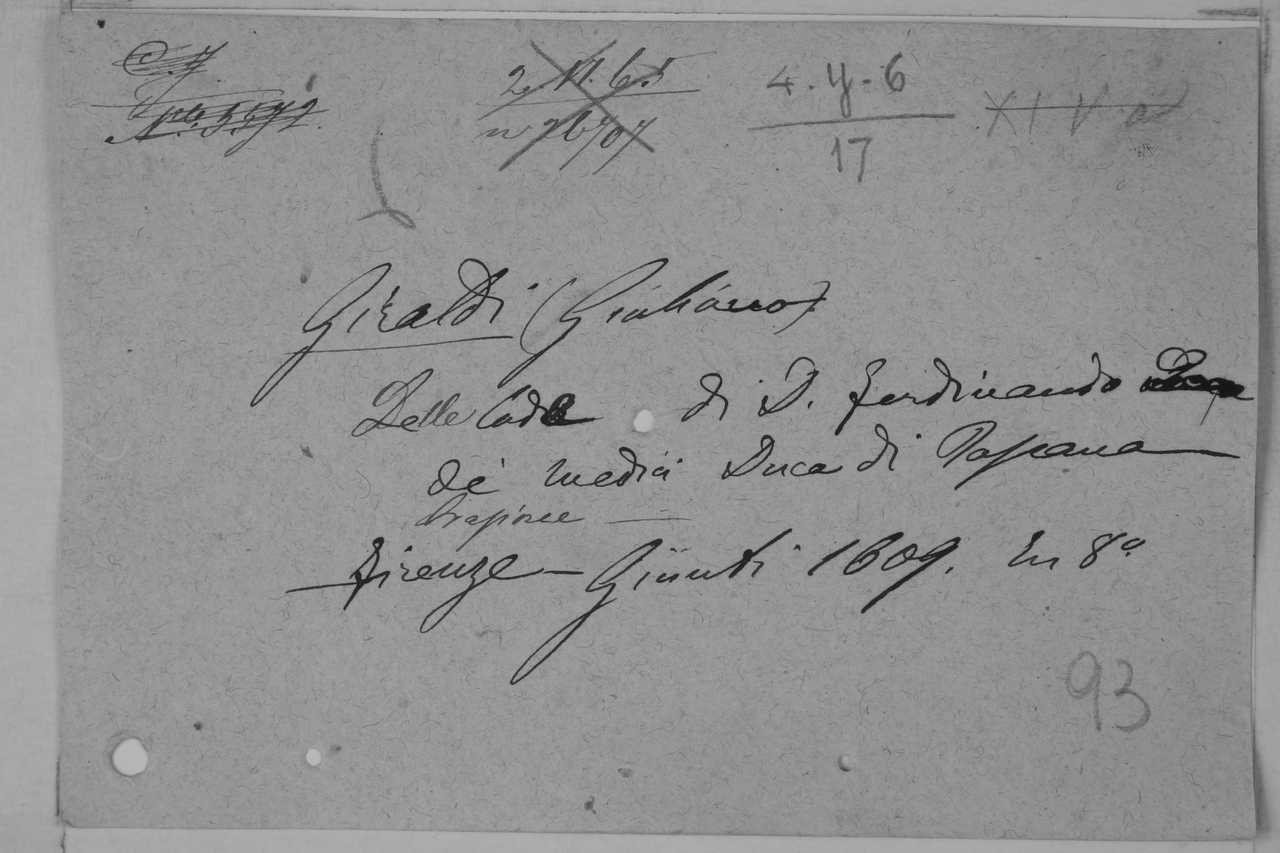 2. 11. 6. 5
n 26707
4 . y - 6
17
XIV a
Giraldi (Giuliano)
Delle Lode di D. Ferdinando
de' Medici Duca di Toscana
Orazione
Firenze - Giunti 1609. In 8º
93